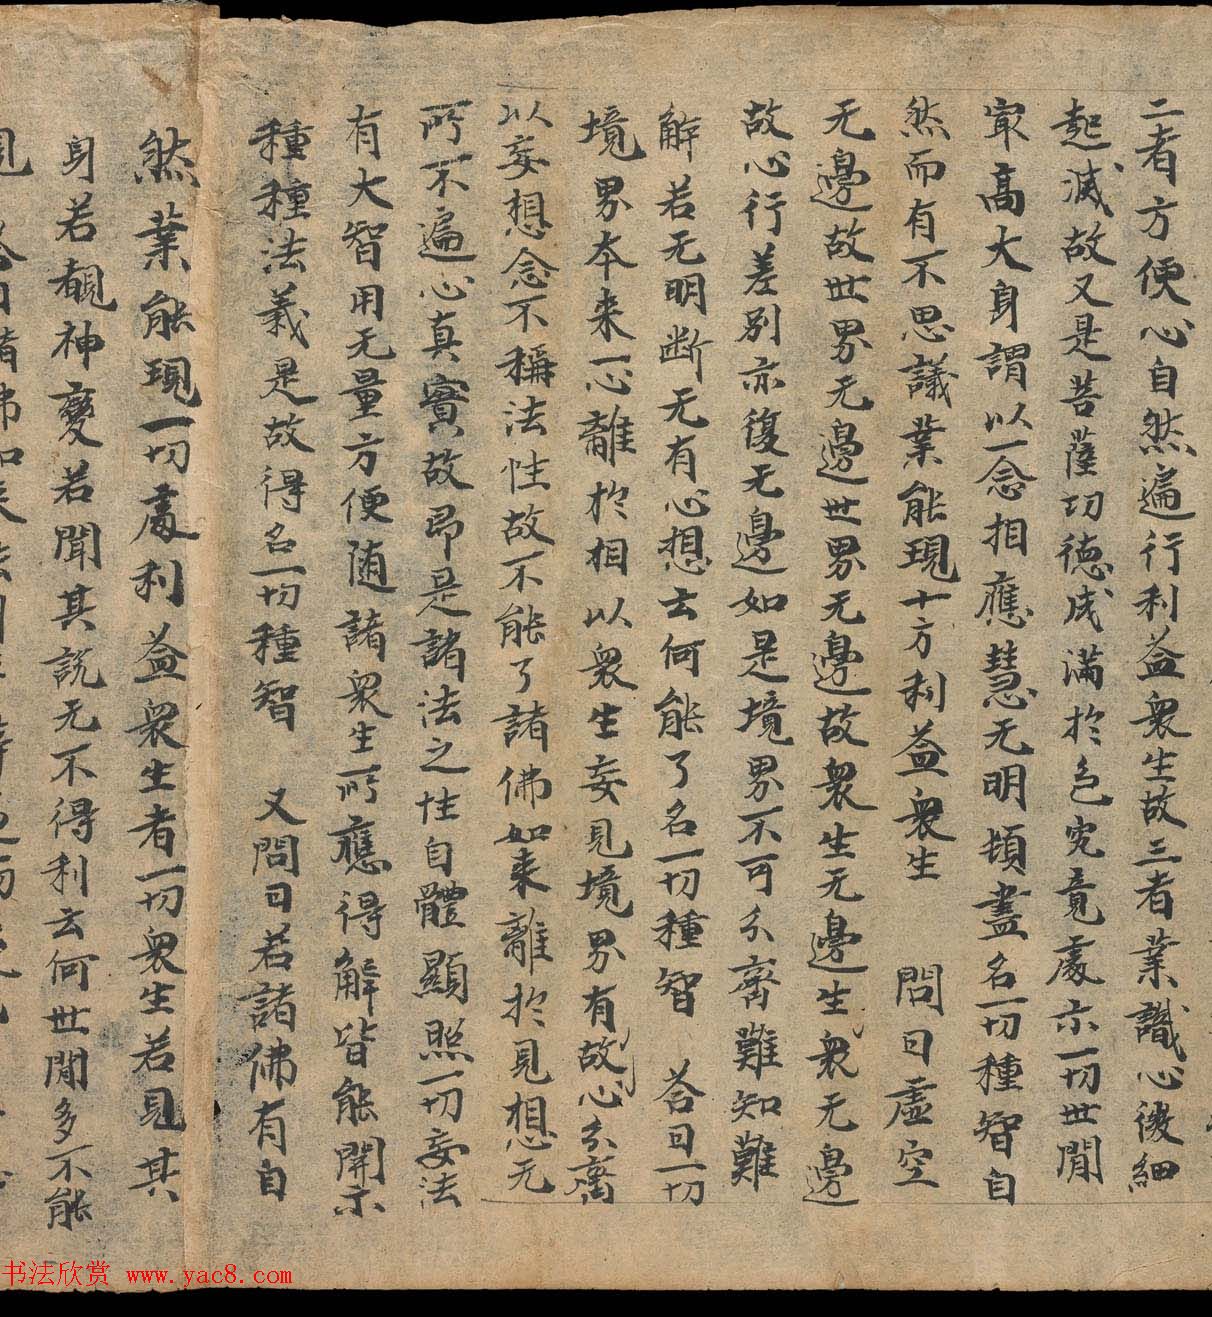 二者方便心自然遍行利益衆生故三者業識心微細
起滅故又是菩薩功德成滿於色究竟處示一切世間
冣高大身謂以一念相應慧无明頓盡名一切種智自
然而有不思議業能現十方利益衆生 問曰虛空
无邊故世界无邊世界无邊故衆生无邊生衆无邊
故心行差別亦復无邊如是境界不可分齊難知難
解若无明斷无有心想云何能了名一切種智 荅曰一切
境界本来一心離於相以衆生妄見境界有故心分齊
以妄想念不稱法性故不能了諸佛如来離於見想无
所不遍心真實故即是諸法之性自體顯照一切妄法
有大智用无量方便随諸衆生所應得解皆能開示
種種法義是故得名一切種智 又問曰若諸佛有自
然業能現一切處利益衆生者一切衆生若見其
身若覩神變若聞其說无不得利云何世間多不能
見 荅曰諸佛如来法
书法欣赏 www.yac8.com